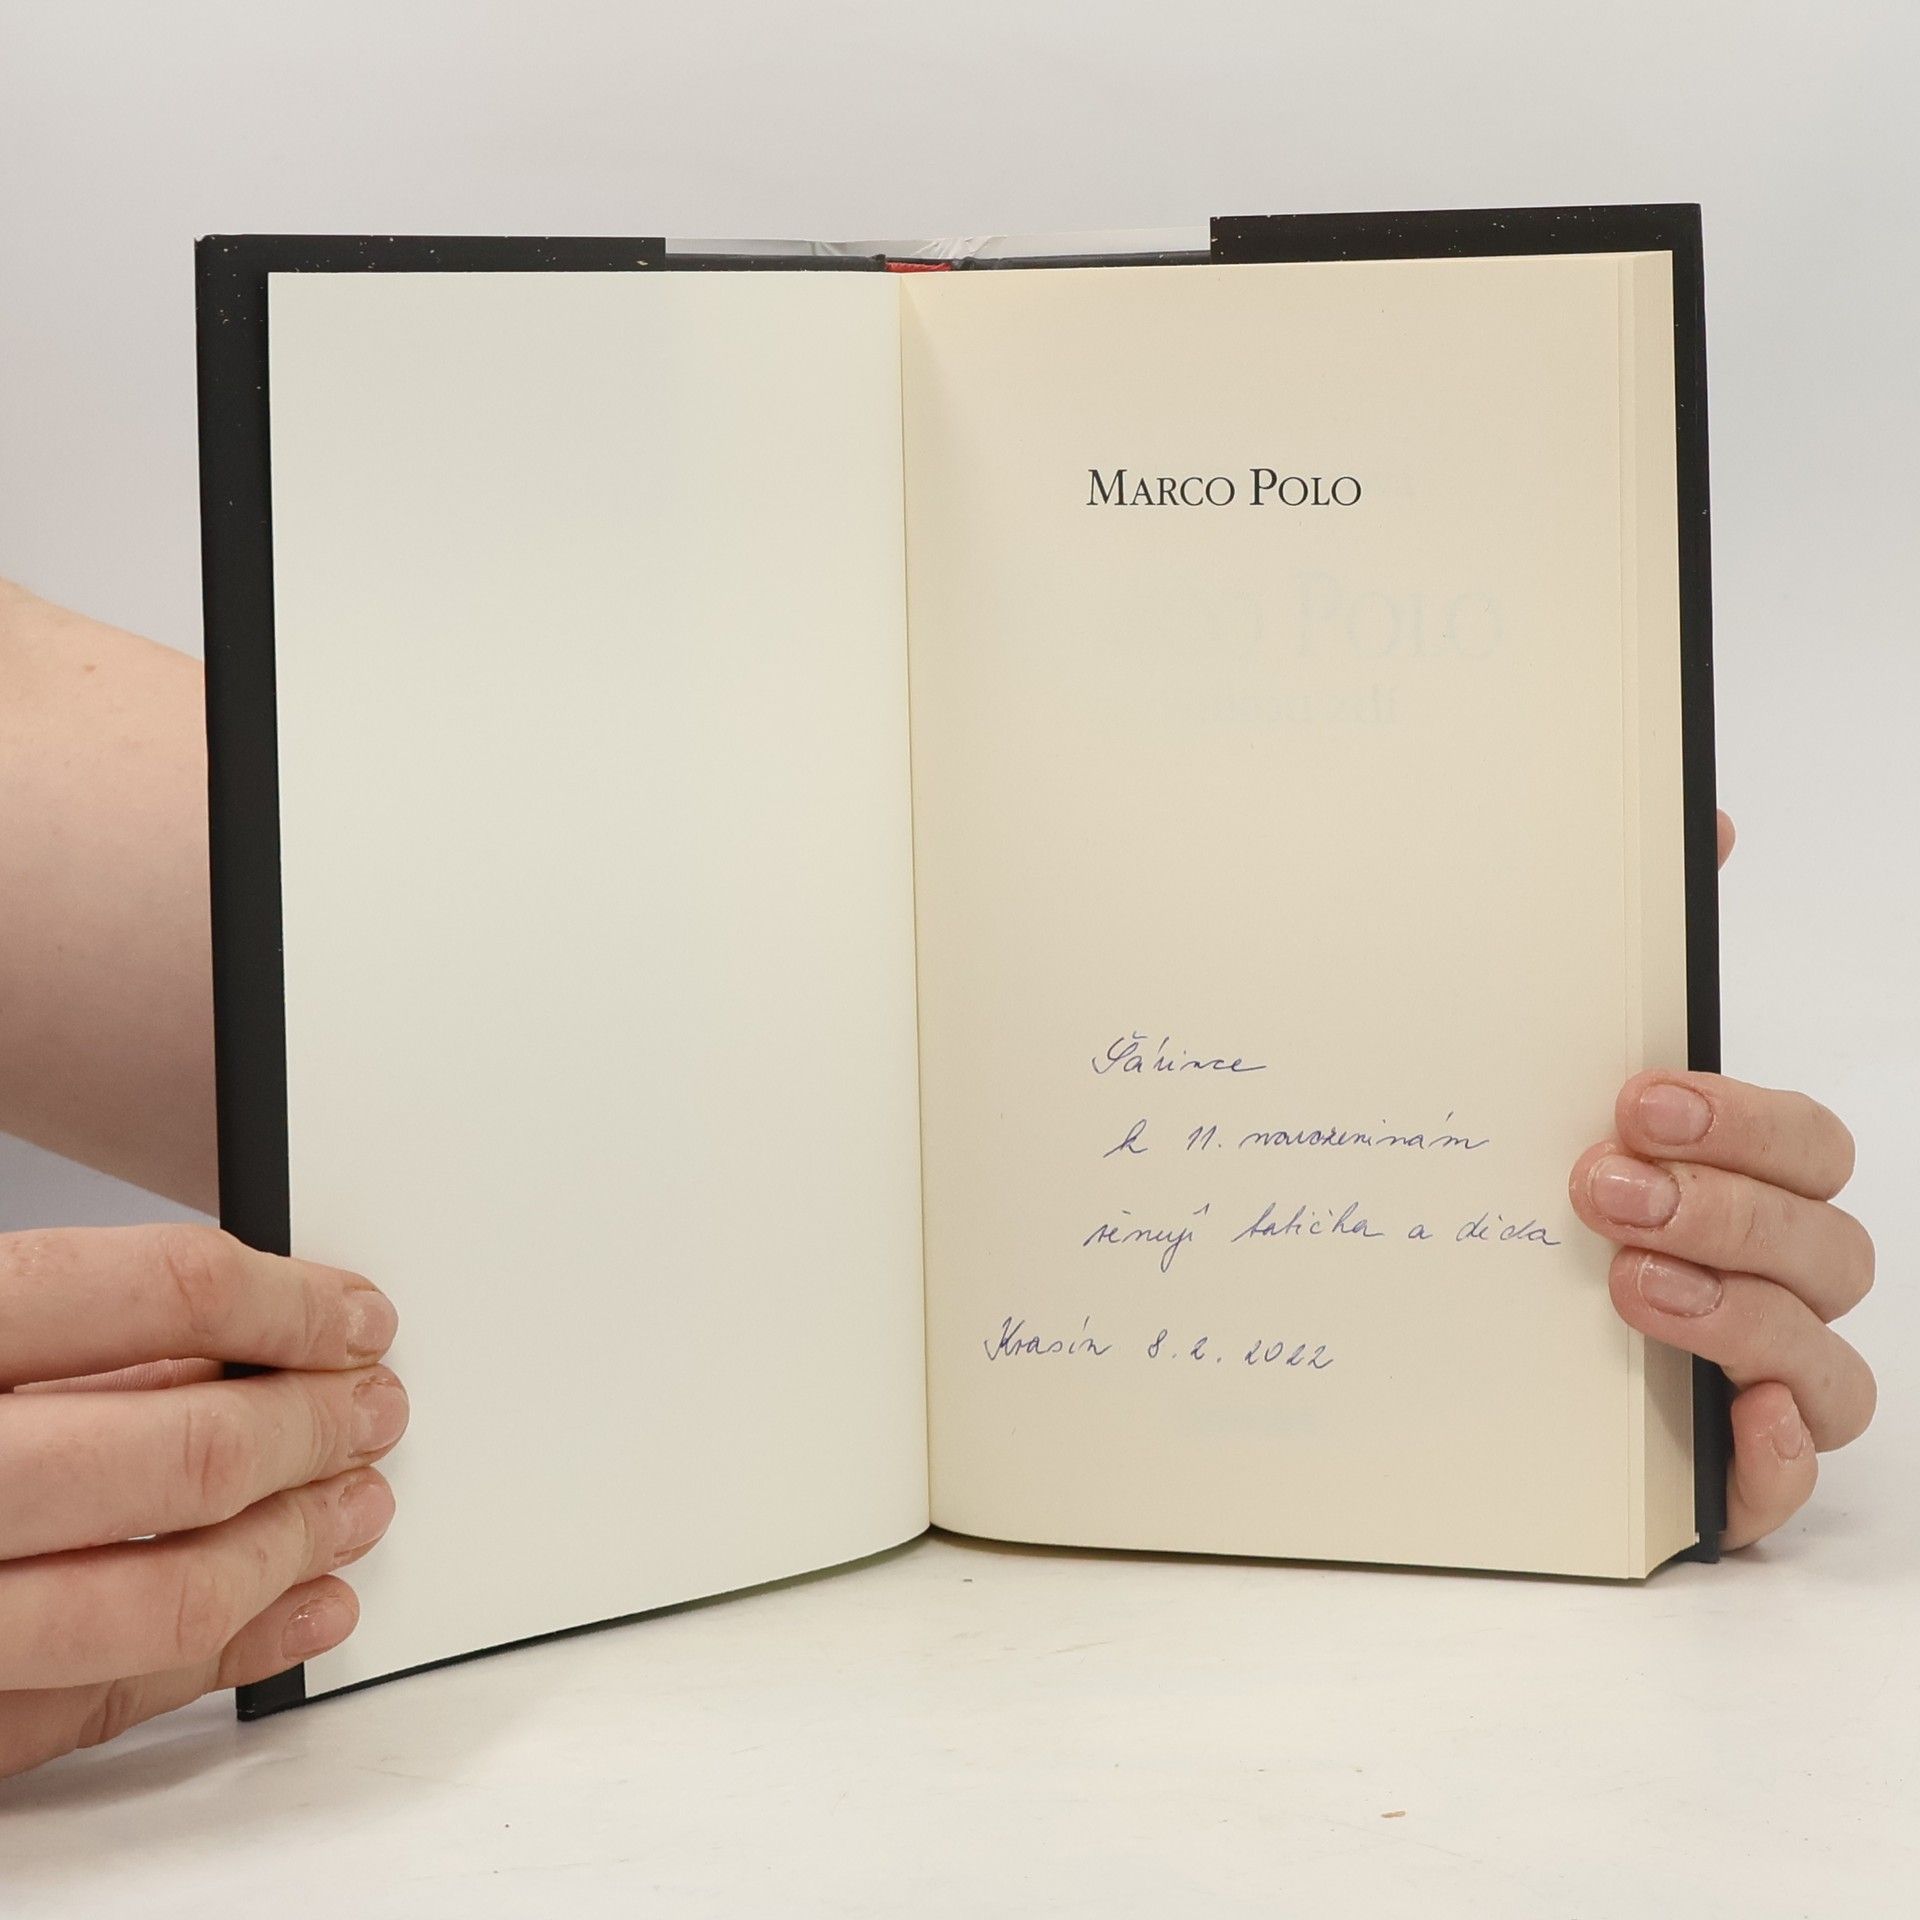 MARCO POLO
Šárince
k 11. narozeninám
věnují babička a děda
Krasín 8. 2. 2022